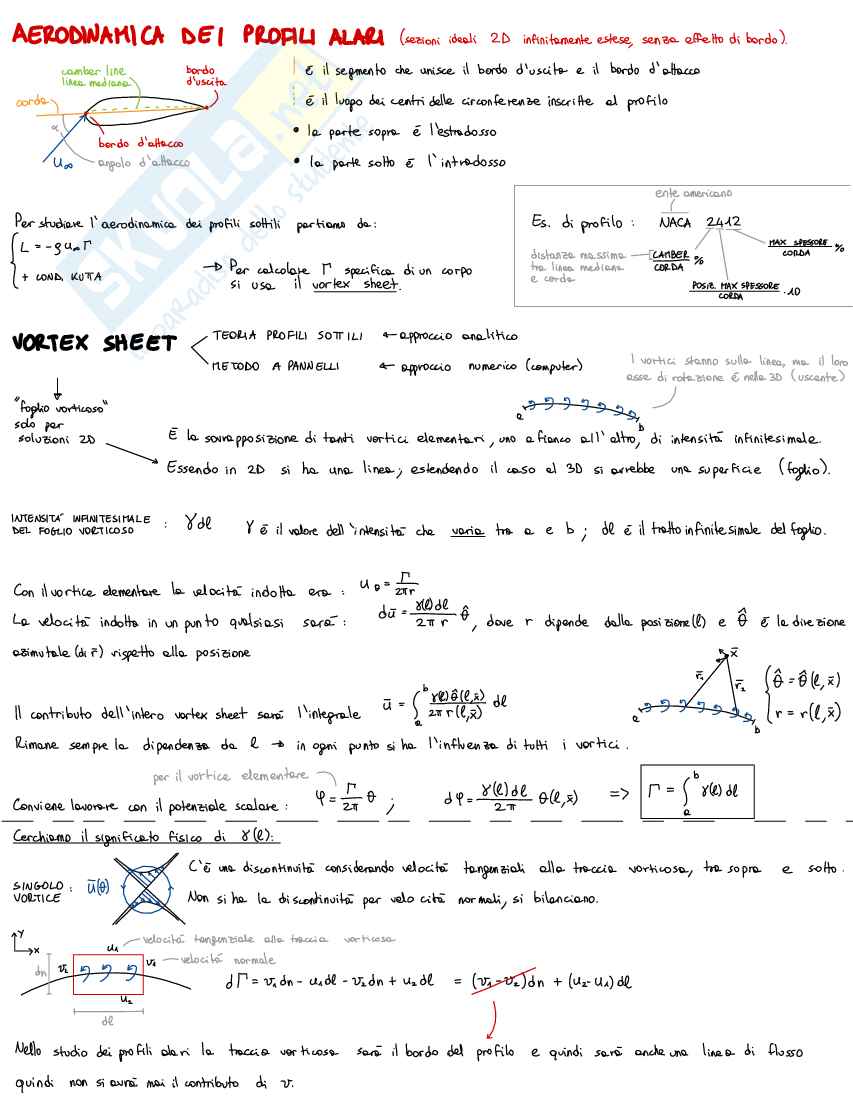 AERODINAMICA DEI PROFILI ALARI (sezioni ideali 2D infinitamente estese, senza effetto di bordo).
camber line
linea mediana
bordo d'uscita
corda
α
bordo d'attacco
angolo d'attacco
u∞
è il segmento che unisce il bordo d'uscita e il bordo d'attacco
è il luogo dei centri delle circonferenze inscritte al profilo
• la parte sopra è l'estradosso
• la parte sotto è l'intradosso
SKUOLA.net
il paradiso dello studente
Per studiare l'aerodinamica dei profili sottili partiamo da:
L = -ρu∞Γ
+ COND. KUTTA
→ Per calcolare Γ specifica di un corpo
si usa il vortex sheet.
ente americano
Es. di profilo : NACA 2412
MAX SPESSORE / CORDA %
distanza massima
tra linea mediana
e corda
CAMBER / CORDA %
POSIZ. MAX SPESSORE / CORDA . 10
VORTEX SHEET
TEORIA PROFILI SOTTILI ← approccio analitico
METODO A PANNELLI ← approccio numerico (computer)
I vortici stanno sulla linea, ma il loro
asse di rotazione è nella 3D (uscente)
"foglio vorticoso"
solo per
soluzioni 2D
a b
È la sovrapposizione di tanti vortici elementari, uno a fianco all'altro, di intensità infinitesimale.
Essendo in 2D si ha una linea; estendendo il caso al 3D si avrebbe una superficie (foglio).
INTENSITÀ INFINITESIMALE
DEL FOGLIO VORTICOSO : γdl γ è il valore dell'intensità che varia tra a e b ; dl è il tratto infinitesimale del foglio.
Con il vortice elementare la velocità indotta era : uθ = Γ / 2πr
La velocità indotta in un punto qualsiasi sarà : dū = γ(l)dl / 2π r θ̂ , dove r dipende dalla posizione (l) e θ̂ è la direzione
azimutale (di r̄) rispetto alla posizione
x̄
r̄₁ r̄₂
a b
θ̂ = θ̂(l, x̄)
r = r(l, x̄)
Il contributo dell'intero vortex sheet sarà l'integrale ū = ∫ₐᵇ γ(l)θ̂(l,x̄) / 2π r(l,x̄) dl
Rimane sempre la dipendenza da l → in ogni punto si ha l'influenza di tutti i vortici.
per il vortice elementare
Conviene lavorare con il potenziale scalare : φ = Γ / 2π θ ; dφ = γ(l)dl / 2π θ(l,x̄) => Γ = ∫ₐᵇ γ(l) dl
Cerchiamo il significato fisico di γ(l):
SINGOLO
VORTICE : ū(θ)
C'è una discontinuità considerando velocità tangenziali alla traccia vorticosa, tra sopra e sotto.
Non si ha la discontinuità per velocità normali, si bilanciano.
y
x
u₁
velocità tangenziale alla traccia vorticosa
v₂ v₁
velocità normale
dn
u₂
dl
dΓ = v₁dn - u₁dl - v₂dn + u₂dl = (v₁-v₂)dn + (u₂-u₁)dl
Nello studio dei profili alari la traccia vorticosa sarà il bordo del profilo e quindi sarà anche una linea di flusso
quindi non si avrà mai il contributo di v.